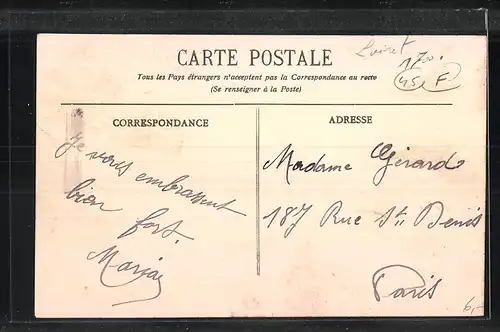 Loiret
CARTE POSTALE
1700.
45 F
Tous les Pays étrangers n'acceptent pas la Correspondance au recto
(Se renseigner à la Poste)
CORRESPONDANCE
Je vous embrassent
bien fort.
Maria
ADRESSE
Madame Gérard
187 Rue St Denis
Paris
6,-